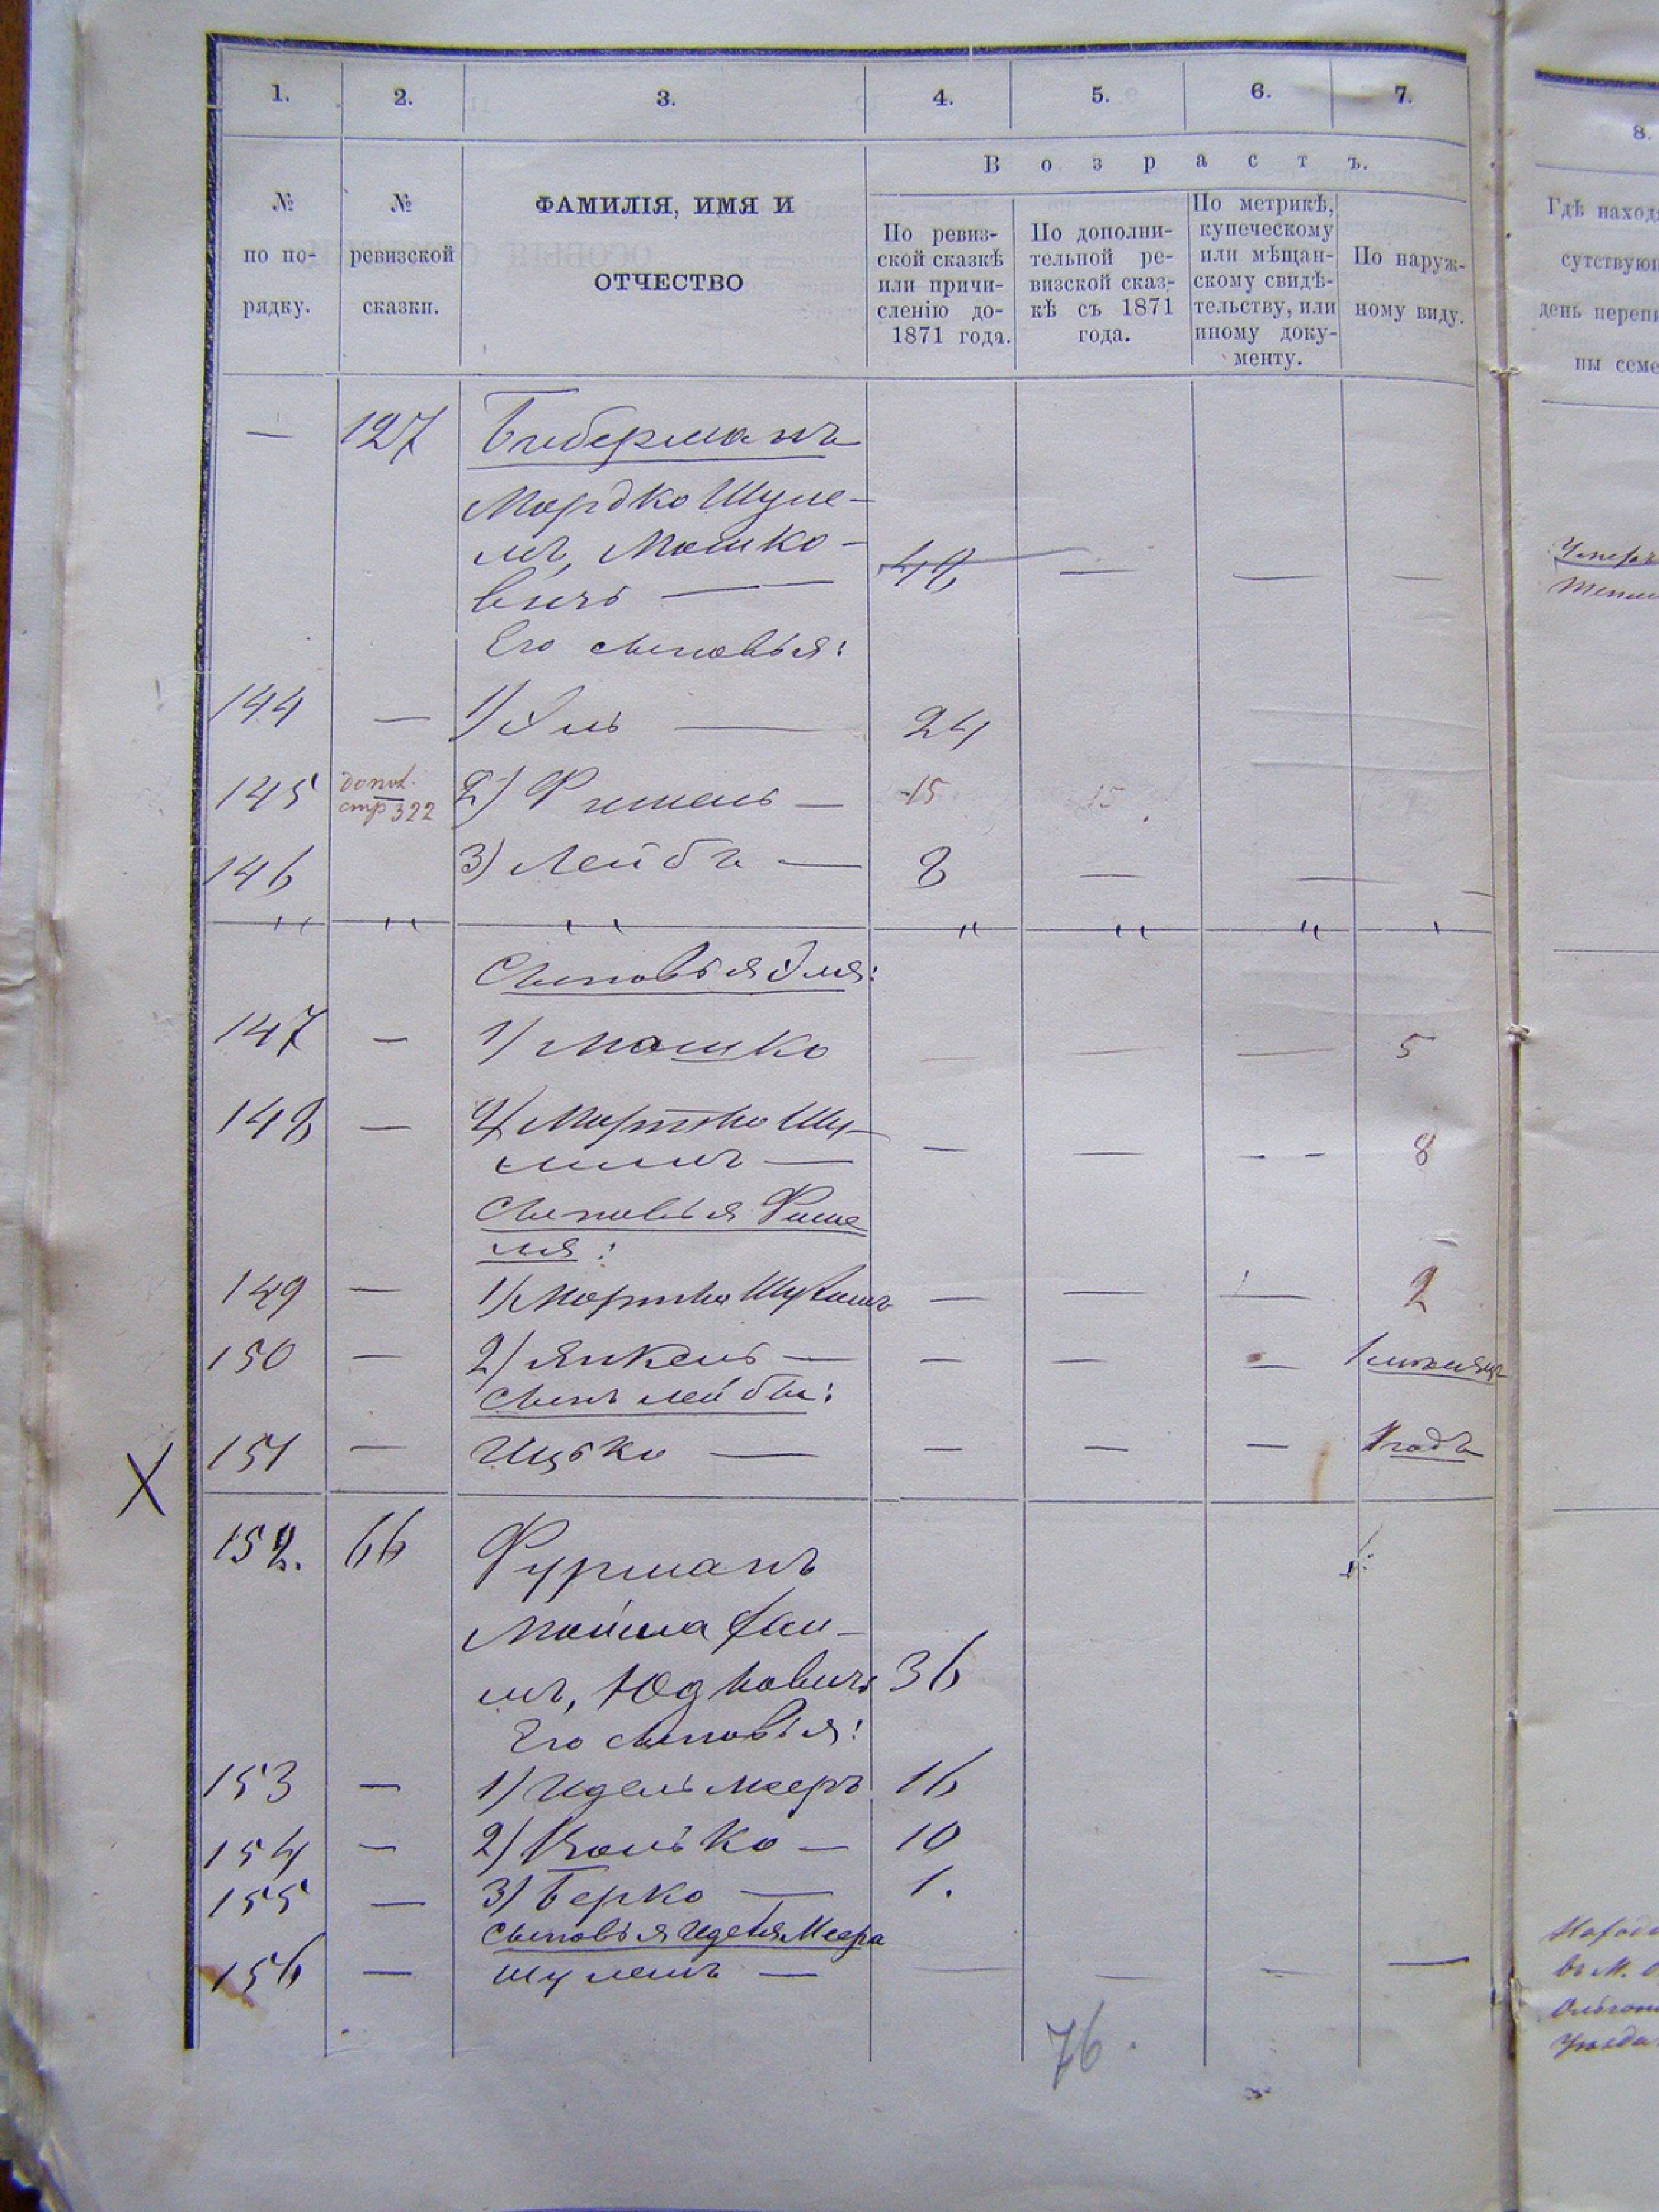 1. 2. 3. 4. 5. 6. 7.
8.
Возрастъ.
№ по порядку.
№ ревизской сказки.
ФАМИЛІЯ, ИМЯ И
ОТЧЕСТВО
По ревиз-
ской сказкѣ
или причи-
сленію до-
1871 года.
По дополни-
тельной ре-
визской сказ-
кѣ съ 1871
года.
По метрикѣ,
купеческому
или мѣщан-
скому свидѣ-
тельству, или
иному доку-
менту.
По наруж-
ному виду.
Гдѣ наход
сутствую
день переп
ны семе
— 127 Биберманъ
Мордко Шуле-
мъ, Мошко-
вичъ — 48 — — —
Его сыновья:
144 — 1) Эль — 24
145 допол. стр 322 2) Фишель — 15 15
146 3) Лейба — 8 — — —
〃 〃 〃 〃 〃 〃 〃
Сыновья Эля:
147 — 1) Мошко — — — 5
148 — 2) Мортко Шу-
лимъ — — — — 8
Сыновья Фише
ля:
149 — 1) Мортко Шулимъ — — — 2
150 — 2) Янкель — — — — 1 мѣсяцъ
Сынъ Лейбы:
151 — Ицько — — — — 1 годъ
X
152. 66 Фурманъ
Мойша Хаи-
мъ, Юдковичъ 36
Его сыновья:
153 — 1) Идель Мееръ 16
154 — 2) Волько — 10
155 — 3) Берко — 1.
Сыновья Иделя Меера
156 — Шулемъ — — — — —
76.
Умеръ
въ М.
Уѣзда